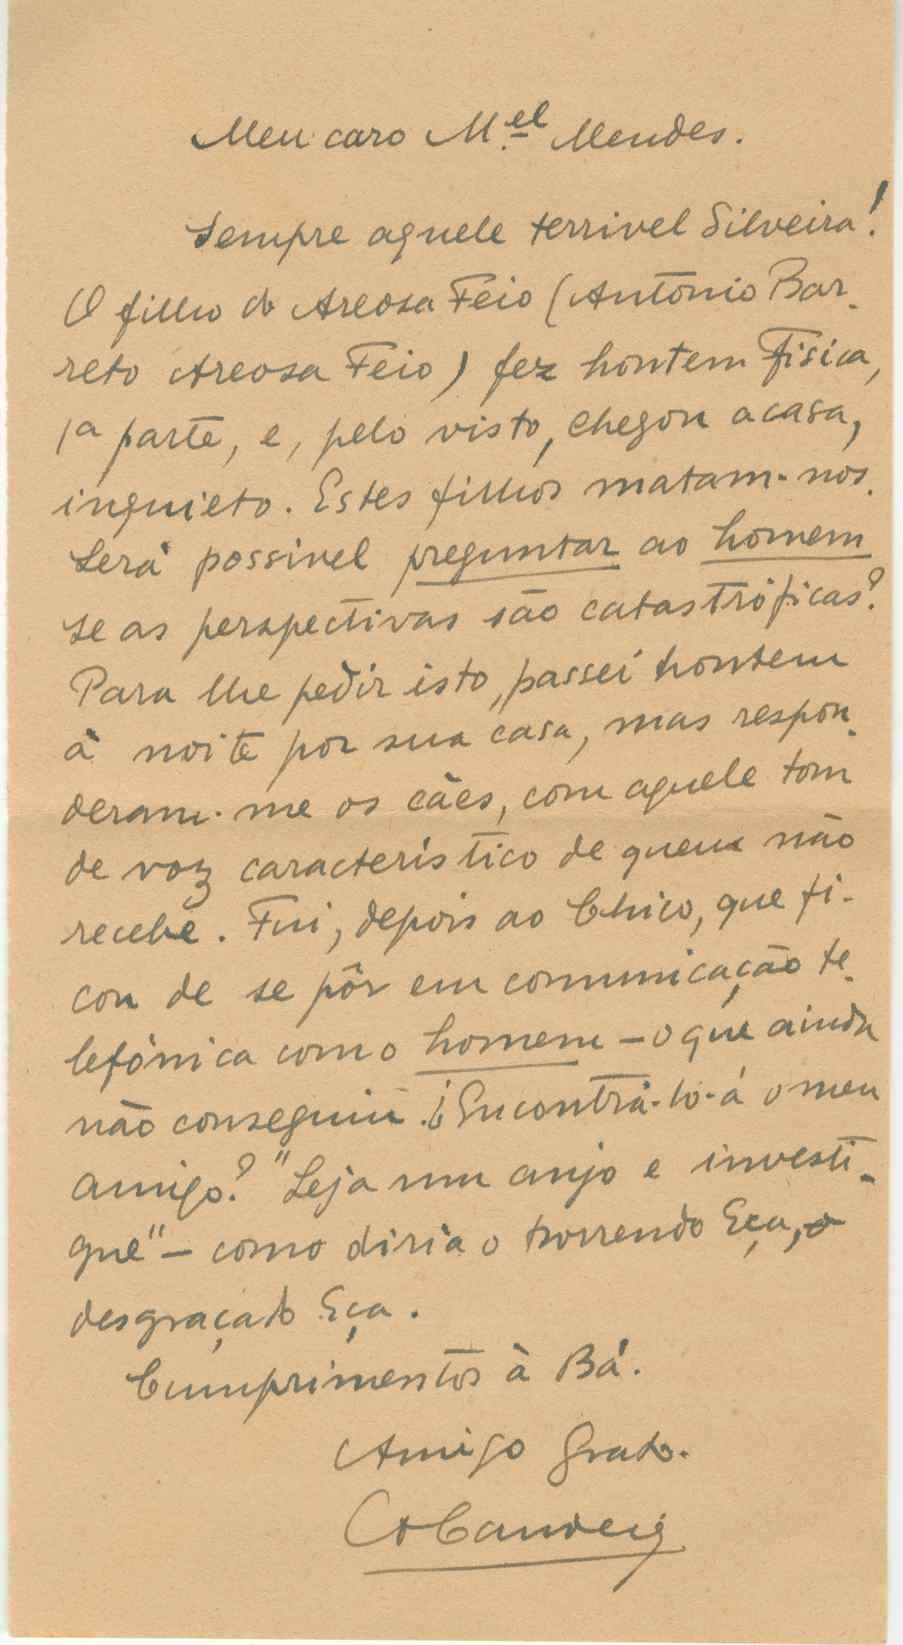 Meu caro M.el Mendes.
Sempre aquele terrivel Silveira!
O filho do Areosa Feio (António Bar-
reto Areosa Feio) fez hontem Fisica,
1a parte, e, pelo visto, chegou a casa,
inquieto. Estes filhos matam-nos.
Será possivel preguntar ao homem
se as perspectivas são catastróficas?
Para lhe pedir isto, passei hontem
à noite por sua casa, mas respon-
deram-me os cães, com aquele tom
de voz caracterís tico de quem não
recebe. Fui, depois ao Chico, que fi-
cou de se pôr em comunicação te-
lefónica com o homem – o que ainda
não conseguiu. ¿Encontrá-lo-á o meu
amigo? "Seja um anjo e investi-
gue" – como diria o horrendo Eça, o
desgraçado Eça.
Cumprimentos à Bá.
Amigo grato.